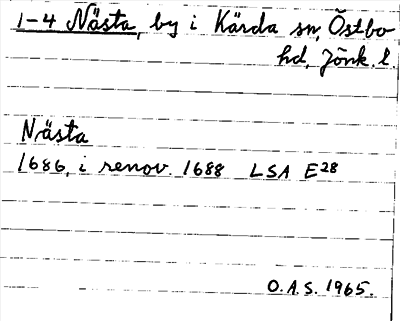 1-4 Nästa, by i Kärda sn, Östbo
hd, Jönk. l.
Nästa
1686, i renov. 1688 LSA E28
O.A.S. 1965.